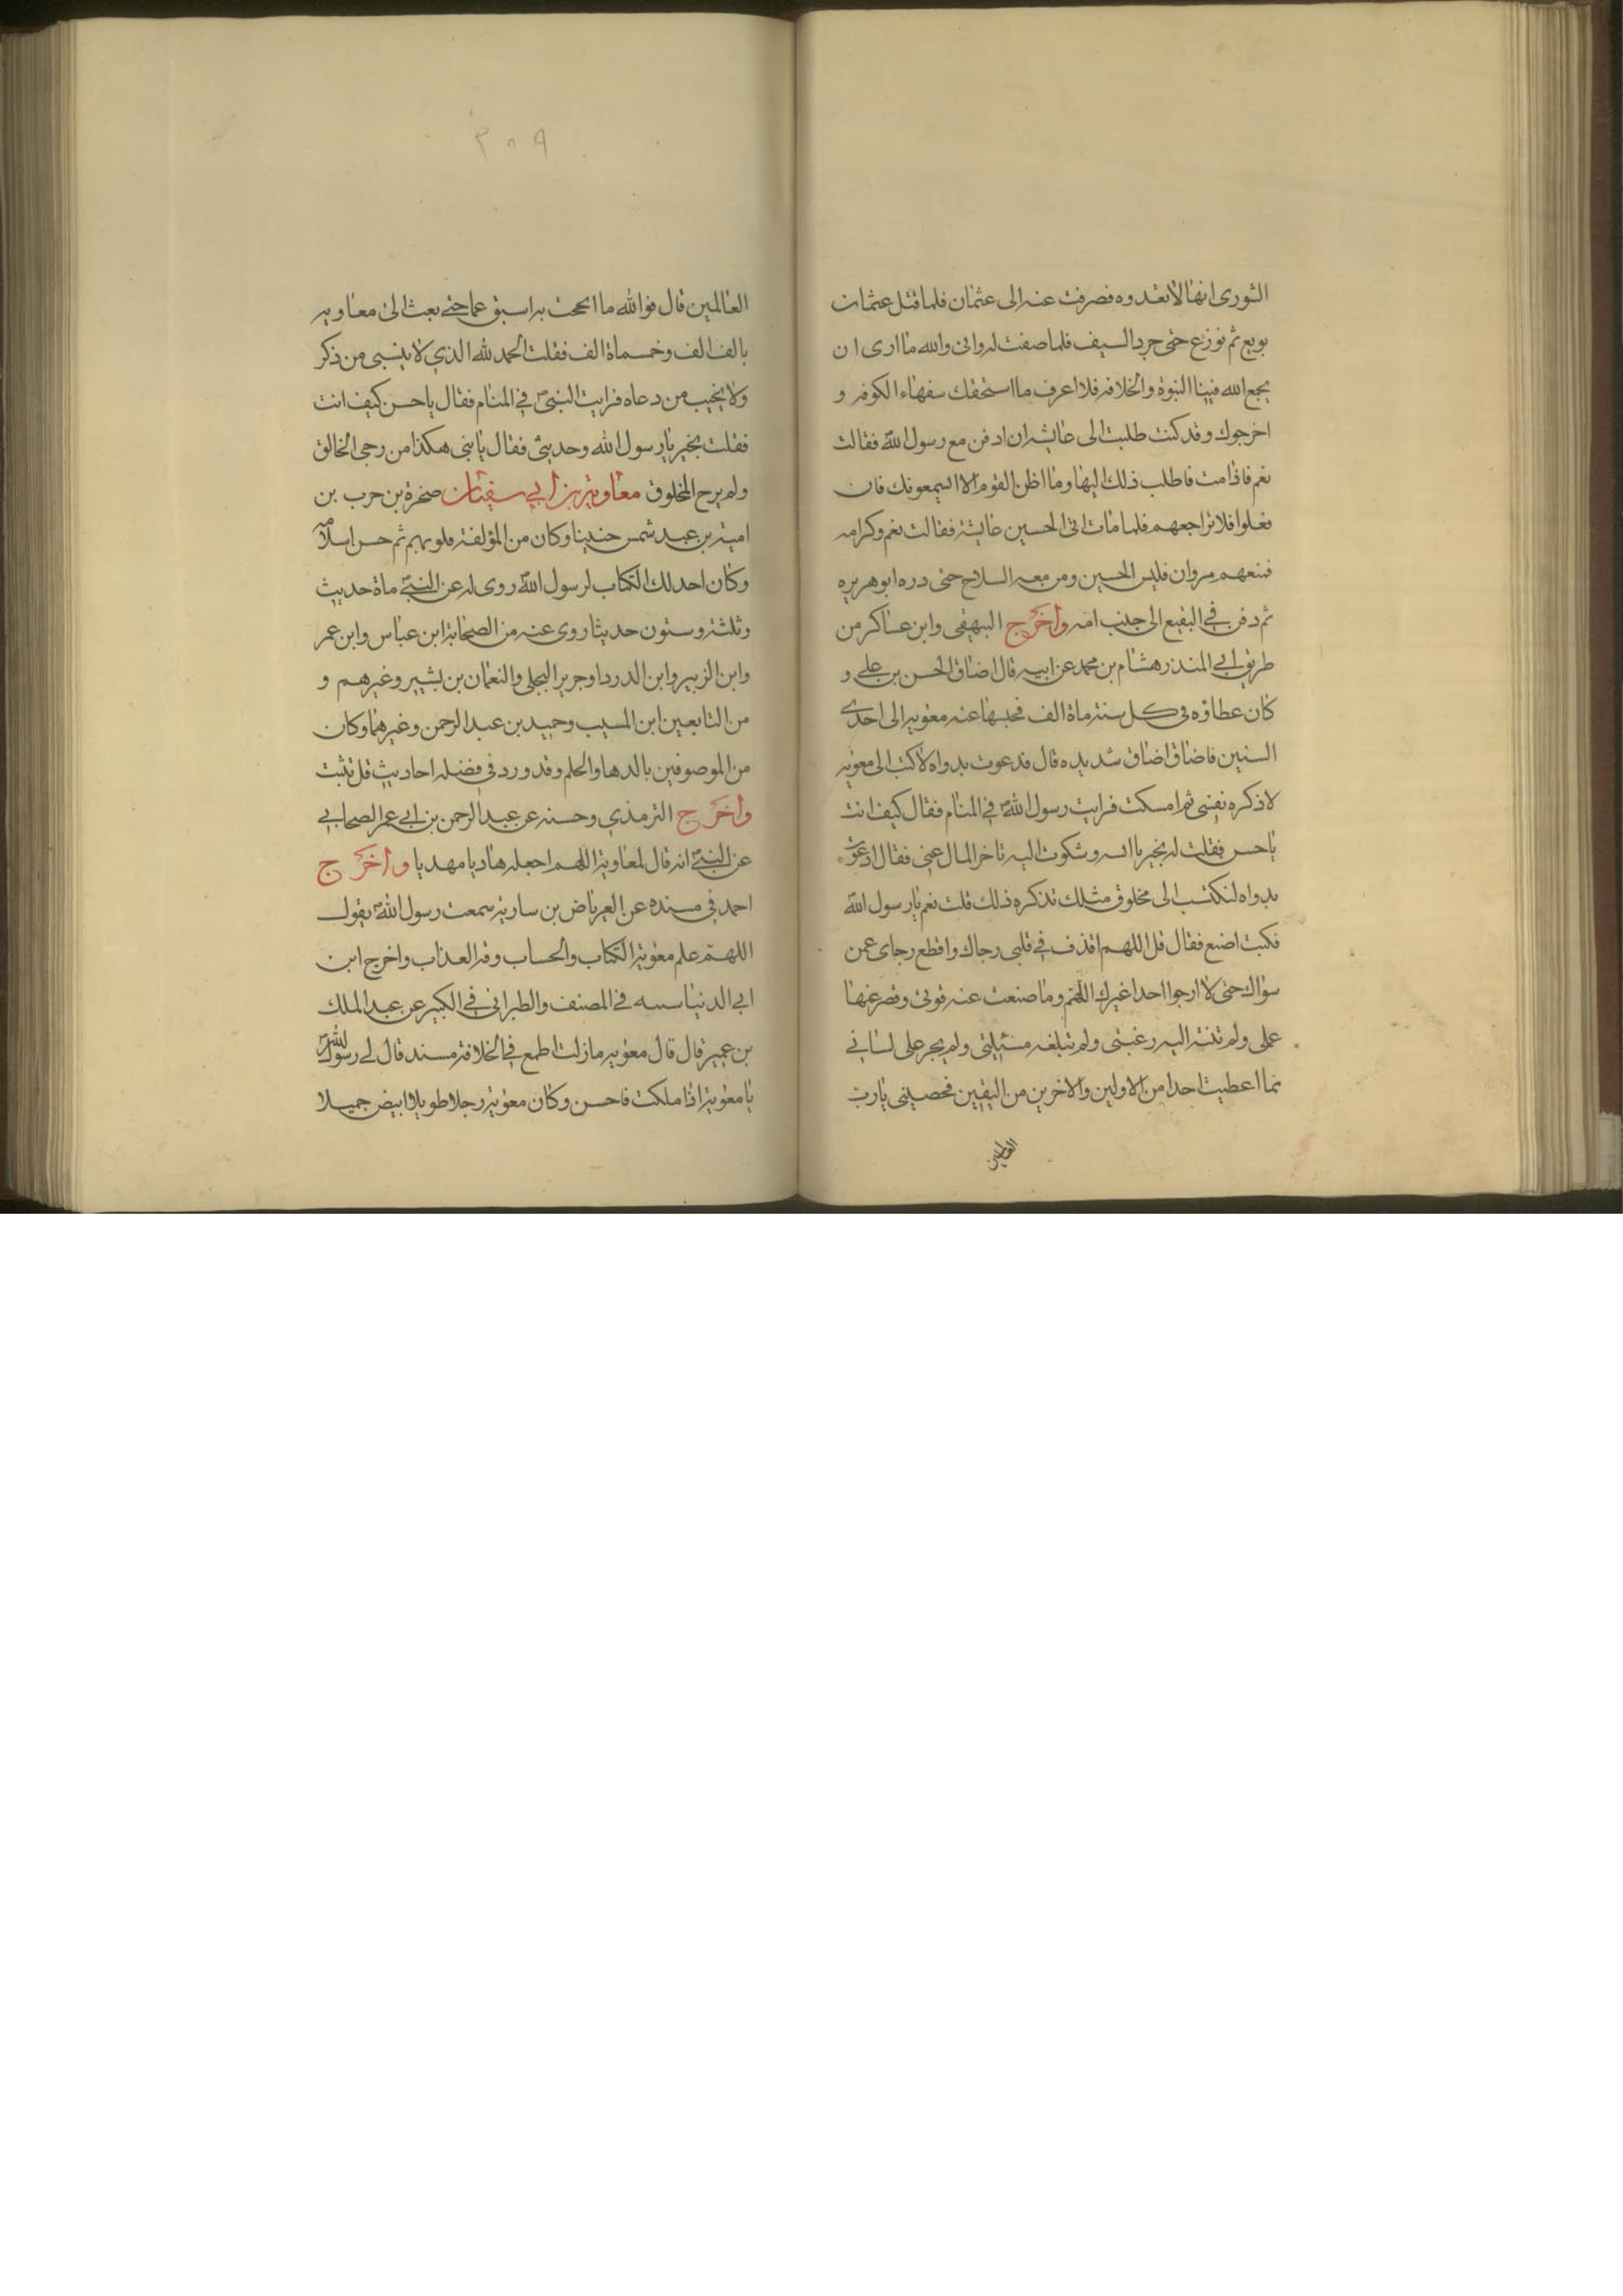 الثورى انها لا تعدوه فصرفت عنه الى عثمان فلما قتل عثمان
بويع ثم نوزع حتى جرد السيف فلما صفت له وانى والله ما ارى ان
يجمع الله فينا النبوة والخلافه فلا اعرف ما استخفك سفهاء الكوفه و
اخرجوك وقد كنت طلبت الى عايشه ان ادفن مع رسول الله فقالت
نعم فاذا مت فاطلب ذلك اليها وما اظن القوم الا سيمعونك فان
فعلوا فلا تراجعهم فلما مات اتى الحسين عايشة فقالت نعم وكرامه
فمنعهم مروان فلبس الحسين ومن معه السلاح حتى درده ابو هريره
ثم دفن في البقيع الى جنب امه واخرج البيهقى وابن عساكر من
طريق ابي المنذر هشام بن محمد عن ابيه قال اضاق الحسن بن علي و
كان عطاؤه في كل سنة ماة الف فحبسها عنه معويه الى احدى
السنين فاضاق اضاق شديده قال فدعوت بدواه لاكتب الى معويه
لاذكره نفسي ثم امسكت فرايت رسول الله في المنام فقال كيف انت
ياحسن فقلت له بخير يا ابه وشكوت اليه تاخر المال عنى فقال ادعوت
بدواه لتكتب الى مخلوق مثلك تذكره ذلك قلت نعم يارسول الله
فكيف اصنع فقال قل اللهم اقذف في قلبى رجاك واقطع رجاى عمن
سواك حتى لا ارجوا احدا غيرك اللهم وما ضعفت عنه قوتى وقصر عنها
عملى ولم تنته اليه رغبتى ولم تبلغه مسئلتى ولم يجر على لسانى
مما اعطيت احدا من الاولين والاخرين من اليقين فخصينى يارب
العالمين
٣٠٩
العالمين قال فوالله ما الححت به اسبوعا حتى بعث الى معاويه
بالف الف وخمسماة الف فقلت الحمد لله الذي لا ينسى من ذكر
ولا يخيب من دعاه فرايت النبى في المنام فقال ياحسن كيف انت
فقلت بخير يارسول الله وحديثى فقال يابنى هكذا من رجى الخالق
ولم يرج المخلوق معاوية بن ابي سفيان صخرة بن حرب بن
امية بن عبد شمس حنينا وكان من المؤلفة قلوبهم ثم حسن اسلامه
وكان احد لك الكتاب لرسول الله روى له عن النبي ماة حديث
وثلثة وستون حديثا روى عنه من الصحابة ابن عباس وابن عمر
وابن الزبير وابن الدردا وجرير البجلى والنعمان بن بشير وغيرهم و
من التابعين ابن المسيب وحميد بن عبد الرحمن وغيرهما وكان
من الموصوفين بالدها والحلم وقد ورد في فضله احاديث قل تثبت
واخرج الترمذي وحسنه عن عبد الرحمن بن ابي عمر الصحابي
عن النبي انه قال لمعاوية اللهم اجعله هاديا مهديا واخرج
احمد في مسنده عن العرباض بن سارية سمعت رسول الله يقول
اللهم علم معوية الكتاب والحساب وقه العذاب واخرج ابن
ابي الدنيا سبه في المصنف والطبرانى في الكبير عن عبد الملك
بن عمير قال قال معويه ما زلت اطمع في الخلافة مسند قال لي رسول الله
يا معوية اذا ملكت فاحسن وكان معوية رجلا طويلا ابيض جميلا